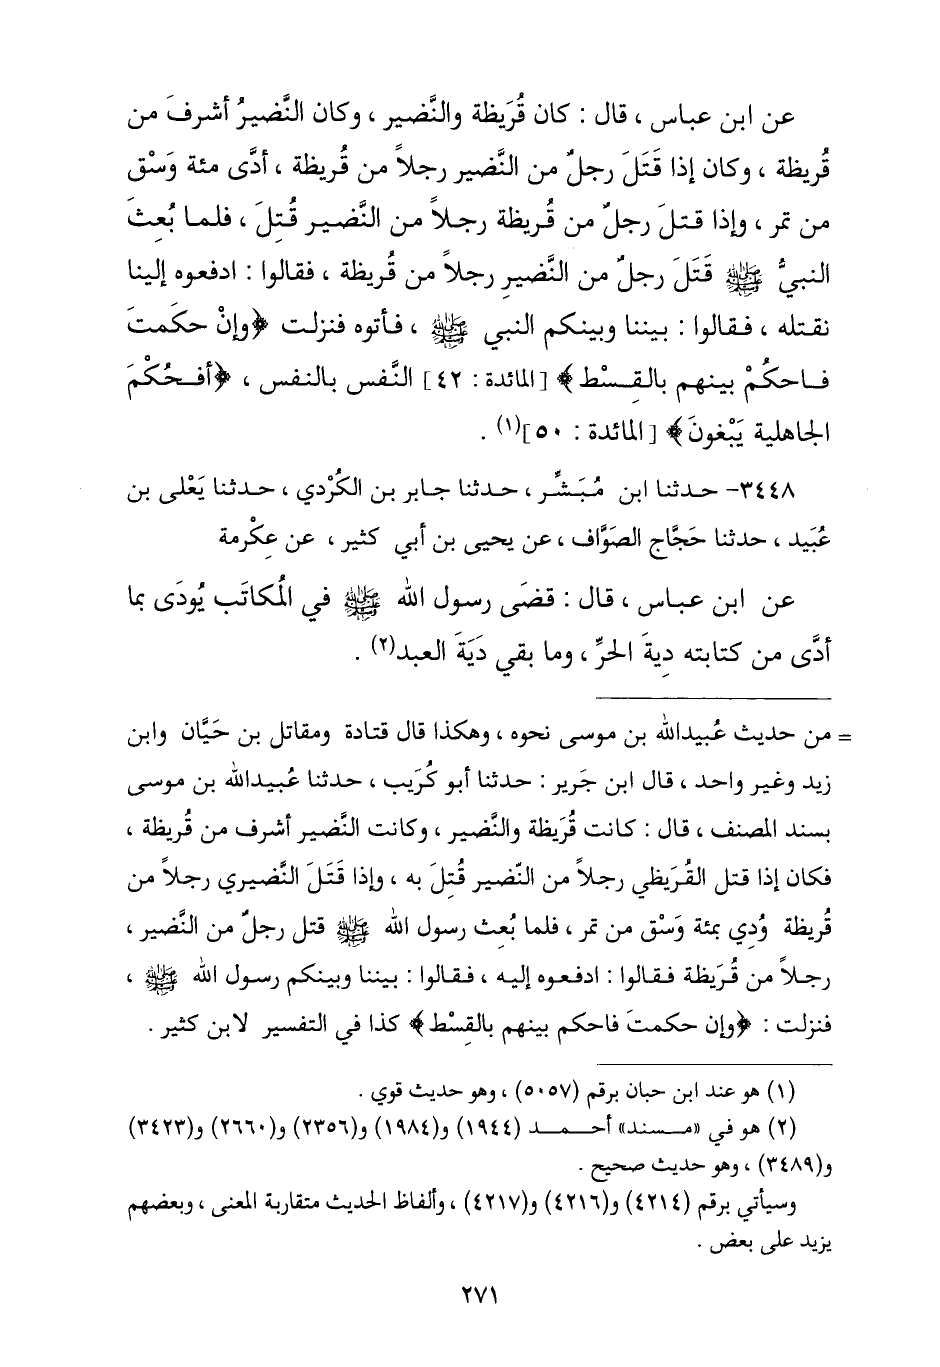 عن ابن عباس ، قال : كان قُرَيظة والنَّضير ، وكان النَّضيرُ أشرفَ من
قُريظة ، وكان إذا قَتَلَ رجلٌ من النَّضير رجلاً من قُريظة ، أدَّى مئة وَسْق
من تمر ، وإذا قتلَ رجلٌ من قُريظة رجلاً من النَّضير قُتِلَ ، فلما بُعثَ
النبيُّ ﷺ قَتَلَ رجلٌ من النَّضيرِ رجلاً من قُريظة ، فقالوا : ادفعوه إلينا
نقتله ، فقالوا : بيننا وبينكم النبي ﷺ ، فأتوه فنزلت ﴿وإنْ حكَمتَ
فاحكُمْ بينهم بالقِسْط﴾ [المائدة : ٤٢] النَّفس بالنفس ، ﴿أفحُكْمَ
الجاهلية يَبْغونَ﴾ [المائدة : ٥٠](١) .
٣٤٤٨- حدثنا ابن مُبَشِّر ، حدثنا جابر بن الكُرْدي ، حدثنا يَعْلى بن
عُبَيد ، حدثنا حَجَّاج الصَوَّاف ، عن يحيى بن أبي كثير ، عن عِكْرمة
عن ابن عباس ، قال : قضَى رسول الله ﷺ في المُكاتَب يُودَى بما
أدَّى من كتابته دِيةَ الحرِّ ، وما بقي دَيَةَ العبد(٢) .
= من حديث عُبيدالله بن موسى نحوه ، وهكذا قال قتادة ومقاتل بن حَيَّان وابن
زيد وغير واحد ، قال ابن جَرير : حدثنا أبو كُرَيب ، حدثنا عُبيدالله بن موسى
بسند المصنف ، قال : كانت قُرَيظة والنَّضير ، وكانت النَّضير أشرف من قُريظة ،
فكان إذا قتل القُرَيظي رجلاً من النّضير قُتِلَ به ، وإذا قَتَلَ النَّضيري رجلاً من
قُريظة وُدِي بمئة وَسْق من تمر ، فلما بُعث رسول الله ﷺ قتل رجلٌ من النَّضير ،
رجلاً من قُرَيظة فقالوا : ادفعوه إليه ، فقالوا : بيننا وبينكم رسول الله ﷺ ،
فنزلت : ﴿وإن حكمتَ فاحكم بينهم بالقِسْط﴾ كذا في التفسير لابن كثير .
(١) هو عند ابن حبان برقم (٥٠٥٧) ، وهو حديث قوي .
(٢) هو في «مسند» أحمد (١٩٤٤) و(١٩٨٤) و(٢٣٥٦) و(٢٦٦٠) و(٣٤٢٣)
و(٣٤٨٩) ، وهو حديث صحيح .
وسيأتي برقم (٤٢١٤) و(٤٢١٦) و(٤٢١٧) ، وألفاظ الحديث متقاربة المعنى ، وبعضهم
يزيد على بعض .
٢٧١